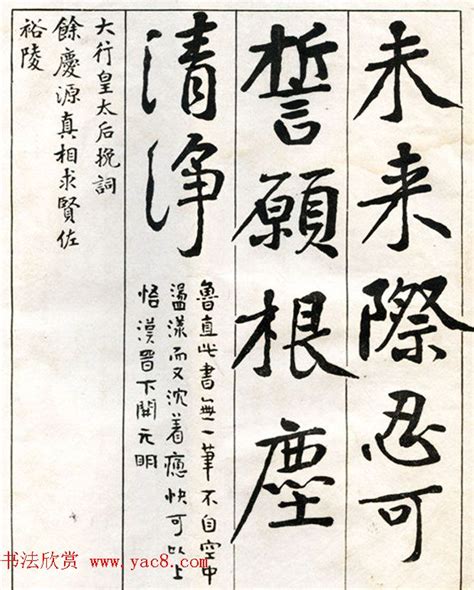 未来際忍可
誓願根塵
清淨
魯直此書無一筆不自空中
盪漾而又沈着痛快可以上
悟漢晋下開元明
大行皇太后挽詞
餘慶源真相求賢佐
裕陵
书法欣赏 www.yac8.com